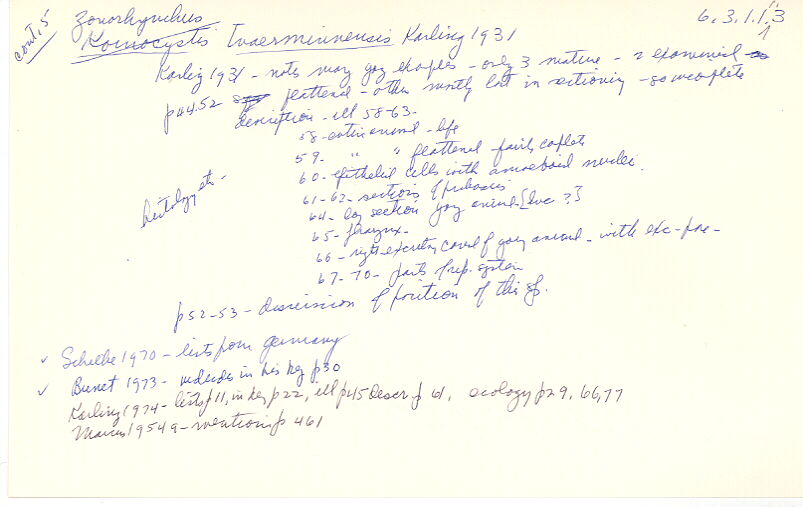 cont, 5
Zonorhynchus
6.3.1.1.3
Koinocystis Tvaerminnensis Karling 1931
Karling 1931 - notes many young examples - only 3 mature - 2 examined
p44.52 flattened - other mostly lost in sectioning - so incomplete
description - ill 58-63.
58 - entire animal - life
59. " " flattened fairly complete
histology etc -
60 - epithelial cells with amoeboid nuclei.
61-62 - sections of proboscis
64 - long section young animal [live?]
65 - pharynx -
66 - right excretory canal of young animal - with exc - pore -
67-70 - parts of rep. system
p52-53 - discussion of position of this sp.
✓ Schilke 1970 - lists from Germany
✓ Brunet 1973 - includes in his key p30
Karling 1974 - lists p11, in key p22, ill p45 Descr p 61, ecology p29, 66, 77
Marcus 1954a - mention p 461